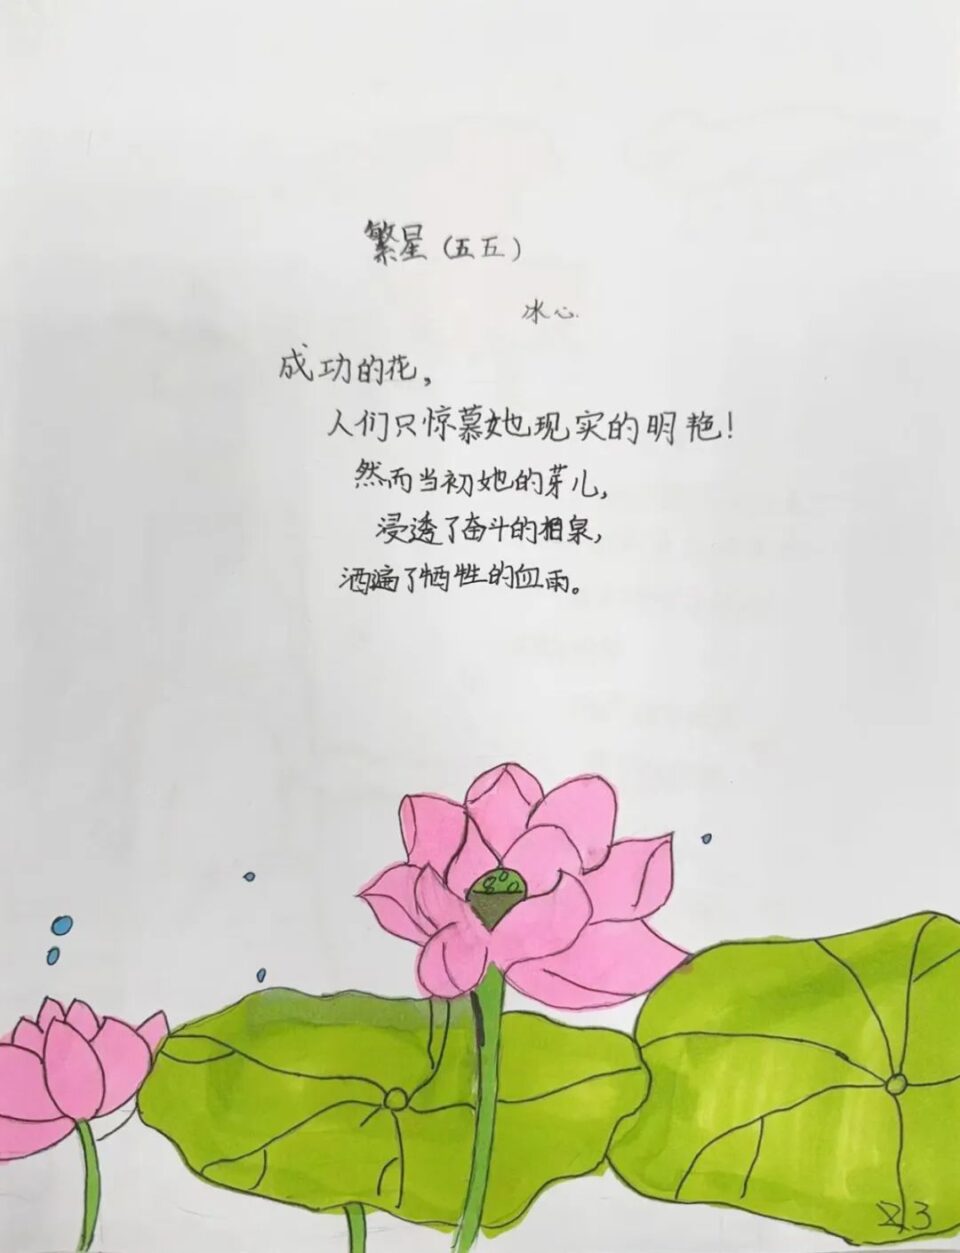 繁星（五五）
冰心
成功的花，
人们只惊慕她现实的明艳！
然而当初她的芽儿，
浸透了奋斗的泪泉，
洒遍了牺牲的血雨。
23